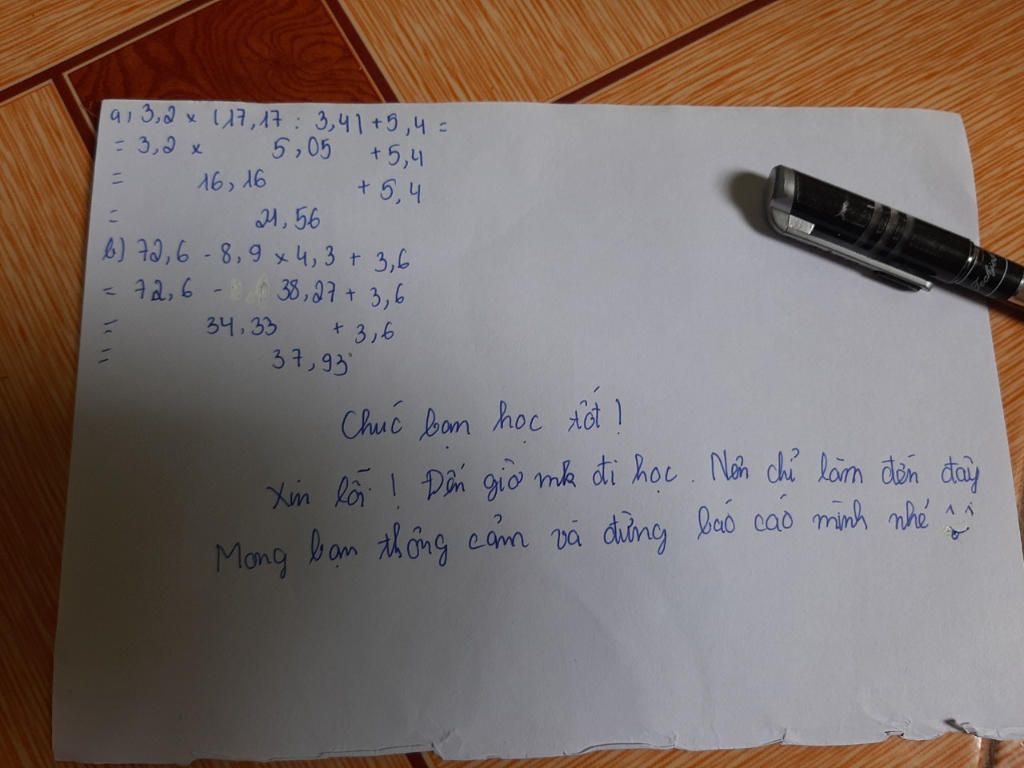 a, 3,2 x (17,17 : 3,4) + 5,4 =
= 3,2 x 5,05 + 5,4
= 16,16 + 5,4
= 21,56
b) 72,6 - 8,9 x 4,3 + 3,6
= 72,6 - 38,27 + 3,6
= 34,33 + 3,6
= 37,93
Chúc bạn học tốt !
Xin lỗi ! Đến giờ mk đi học. Nên chỉ làm đến đây
Mong bạn thông cảm và đừng báo cáo mình nhé ^^